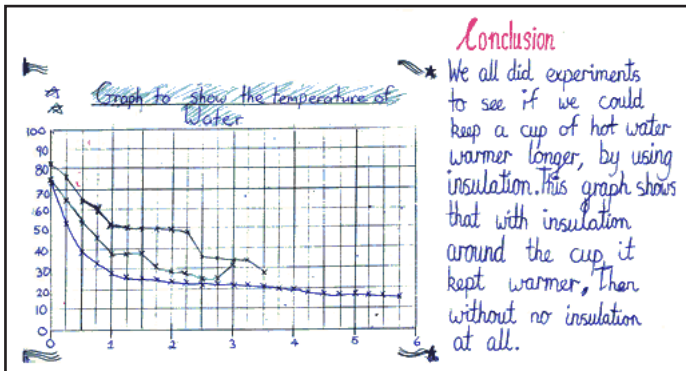 Graph to show the temperature of
Water
100
90
80
70
60
50
40
30
20
10
0
0 1 2 3 4 5 6
Conclusion
We all did experiments
to see if we could
keep a cup of hot water
warmer longer, by using
insulation. This graph shows
that with insulation
around the cup it
kept warmer, Then
without no insulation
at all.